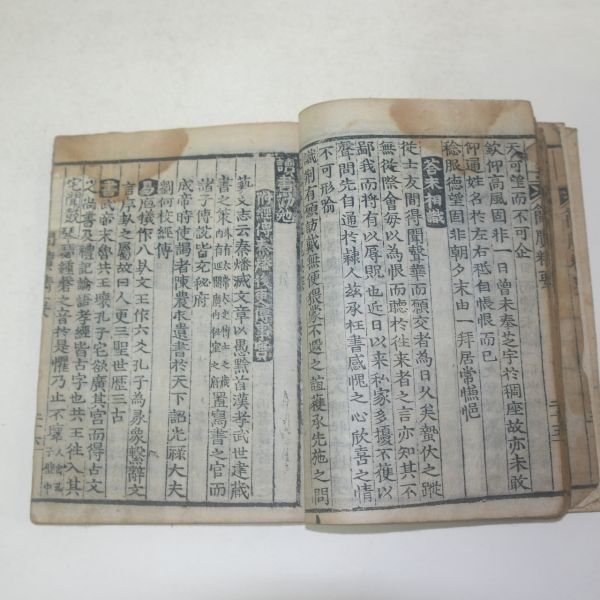 天可望而不可企
欽仰高風固非一日曾未奉芝宇於稠座故亦未敢
仰通姓名於左右秪自悵恨而已
稔服德望固非朝夕末由一拜居常慊悒
答未相識
從士友間得聞聲華而願交者爲日久矣蟄伏之蹤
無從際會每以爲恨而聽於往來者之言亦知其不
鄙我而將有以辱貺也近日以來私家多擾不獲以
聲問先自通於隷人玆承枉書感愧之心欣喜之情
不可形喩
識荊有願訪戴無便偎蒙不遐之誼獲承先施之問
讀書
藝文志云秦燔滅文章以愚黔首漢孝武世建藏
書之策置寫書之官而
諸子傳說皆充秘府
成帝時使謁者陳農求遺書於天下詔光祿大夫
劉向校經傳
易庖犧作八卦文王作六爻孔子爲彖象繫辭文
言序卦之屬故曰人更三聖世歷三古
書武帝末魯共王壞孔子宅欲廣其宮而得古文
之尙書及禮記論語孝經皆古字也共王往入其
宅聞鼓琴瑟鍾磬之音於是懼乃止不壞